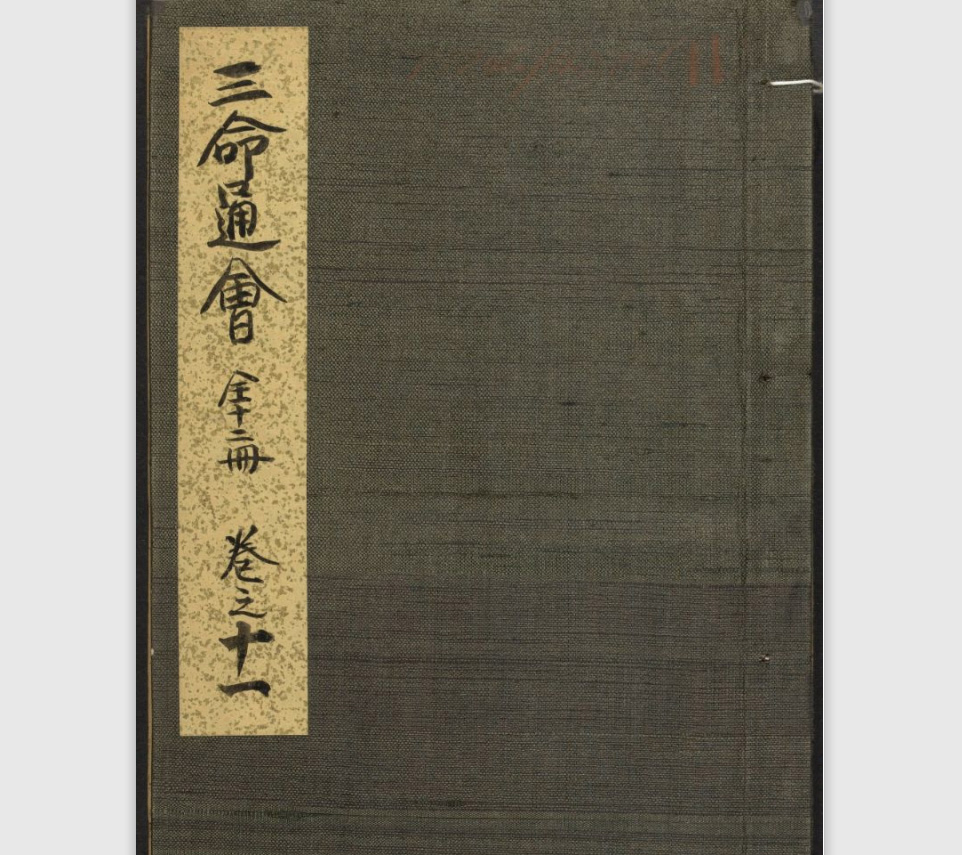 三命通會 全十二冊 卷之十一